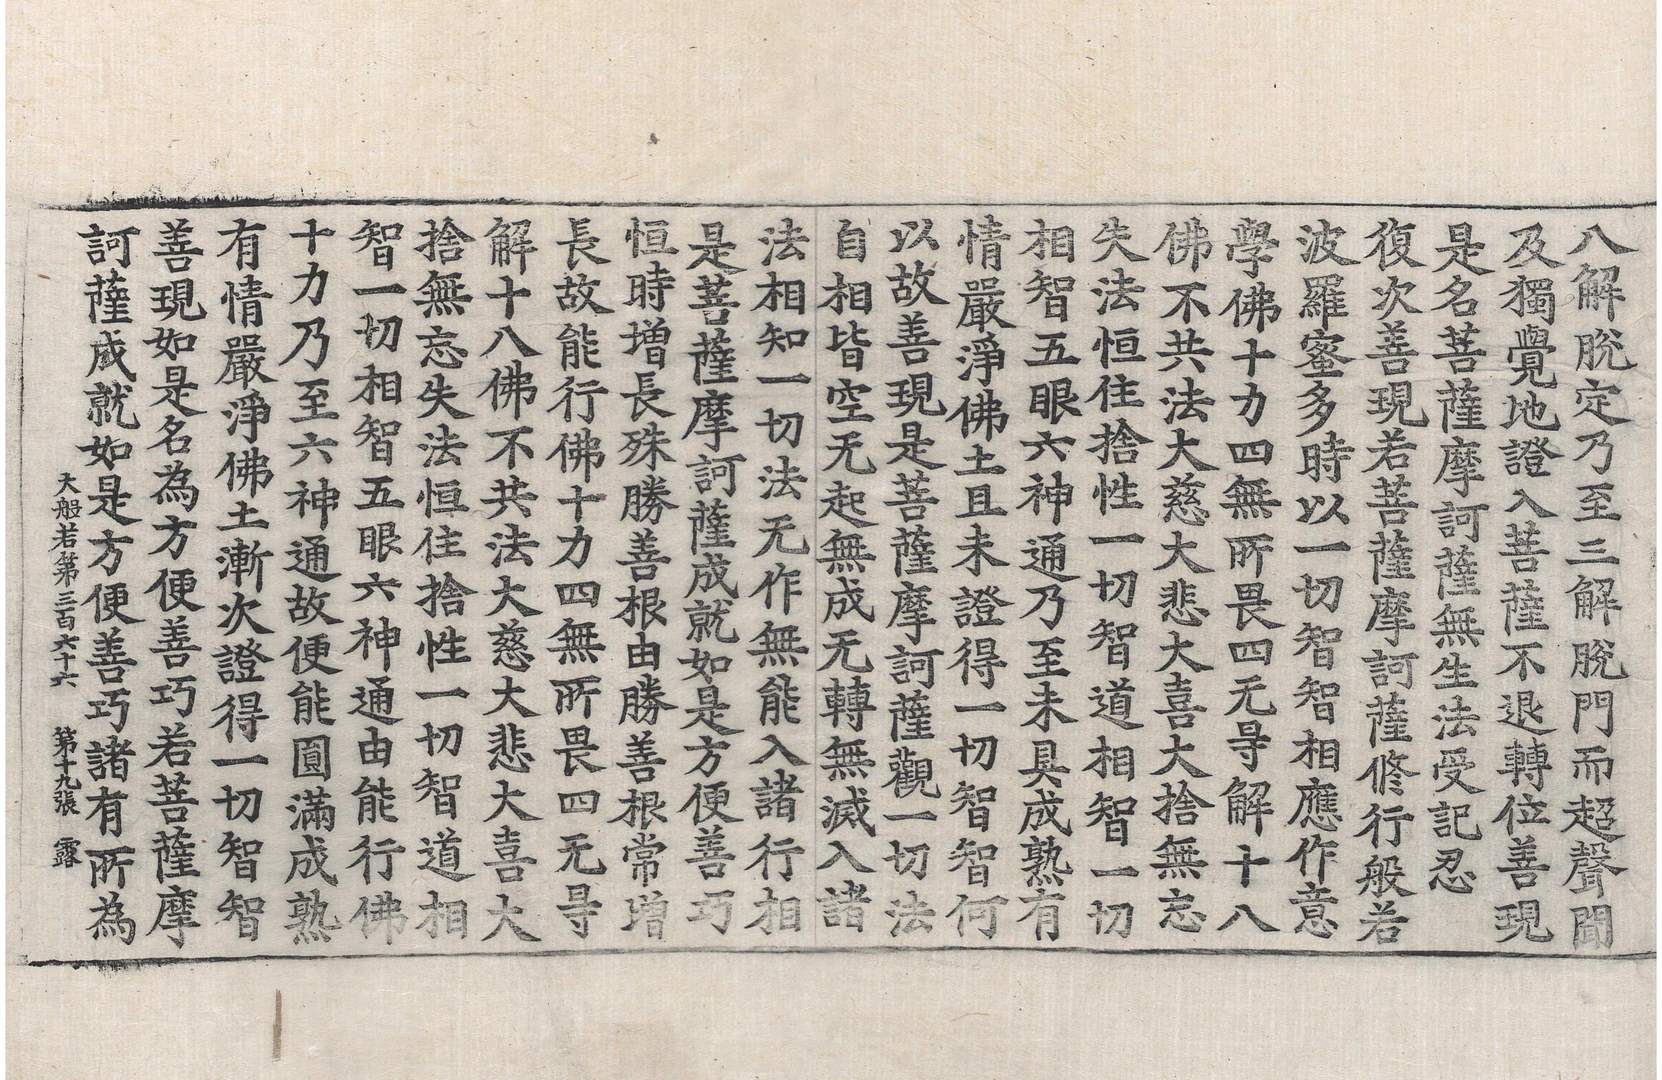 八解脫定乃至三解脫門而超聲聞
及獨覺地證入菩薩不退轉位善現
是名菩薩摩訶薩無生法受記忍
復次善現若菩薩摩訶薩修行般若
波羅蜜多時以一切智智相應作意
學佛十力四無所畏四无㝵解十八
佛不共法大慈大悲大喜大捨無忘
失法恒住捨性一切智道相智一切
相智五眼六神通乃至未具成熟有
情嚴淨佛土且未證得一切智智何
以故善現是菩薩摩訶薩觀一切法
自相皆空无起無成无轉無滅入諸
法相知一切法无作無能入諸行相
是菩薩摩訶薩成就如是方便善巧
恒時增長殊勝善根由勝善根常增
長故能行佛十力四無所畏四无㝵
解十八佛不共法大慈大悲大喜大
捨無忘失法恒住捨性一切智道相
智一切相智五眼六神通由能行佛
十力乃至六神通故便能圓滿成熟
有情嚴淨佛土漸次證得一切智智
善現如是名為方便善巧若菩薩摩
訶薩成就如是方便善巧諸有所為
大般若第三百六十六 第十九張 露